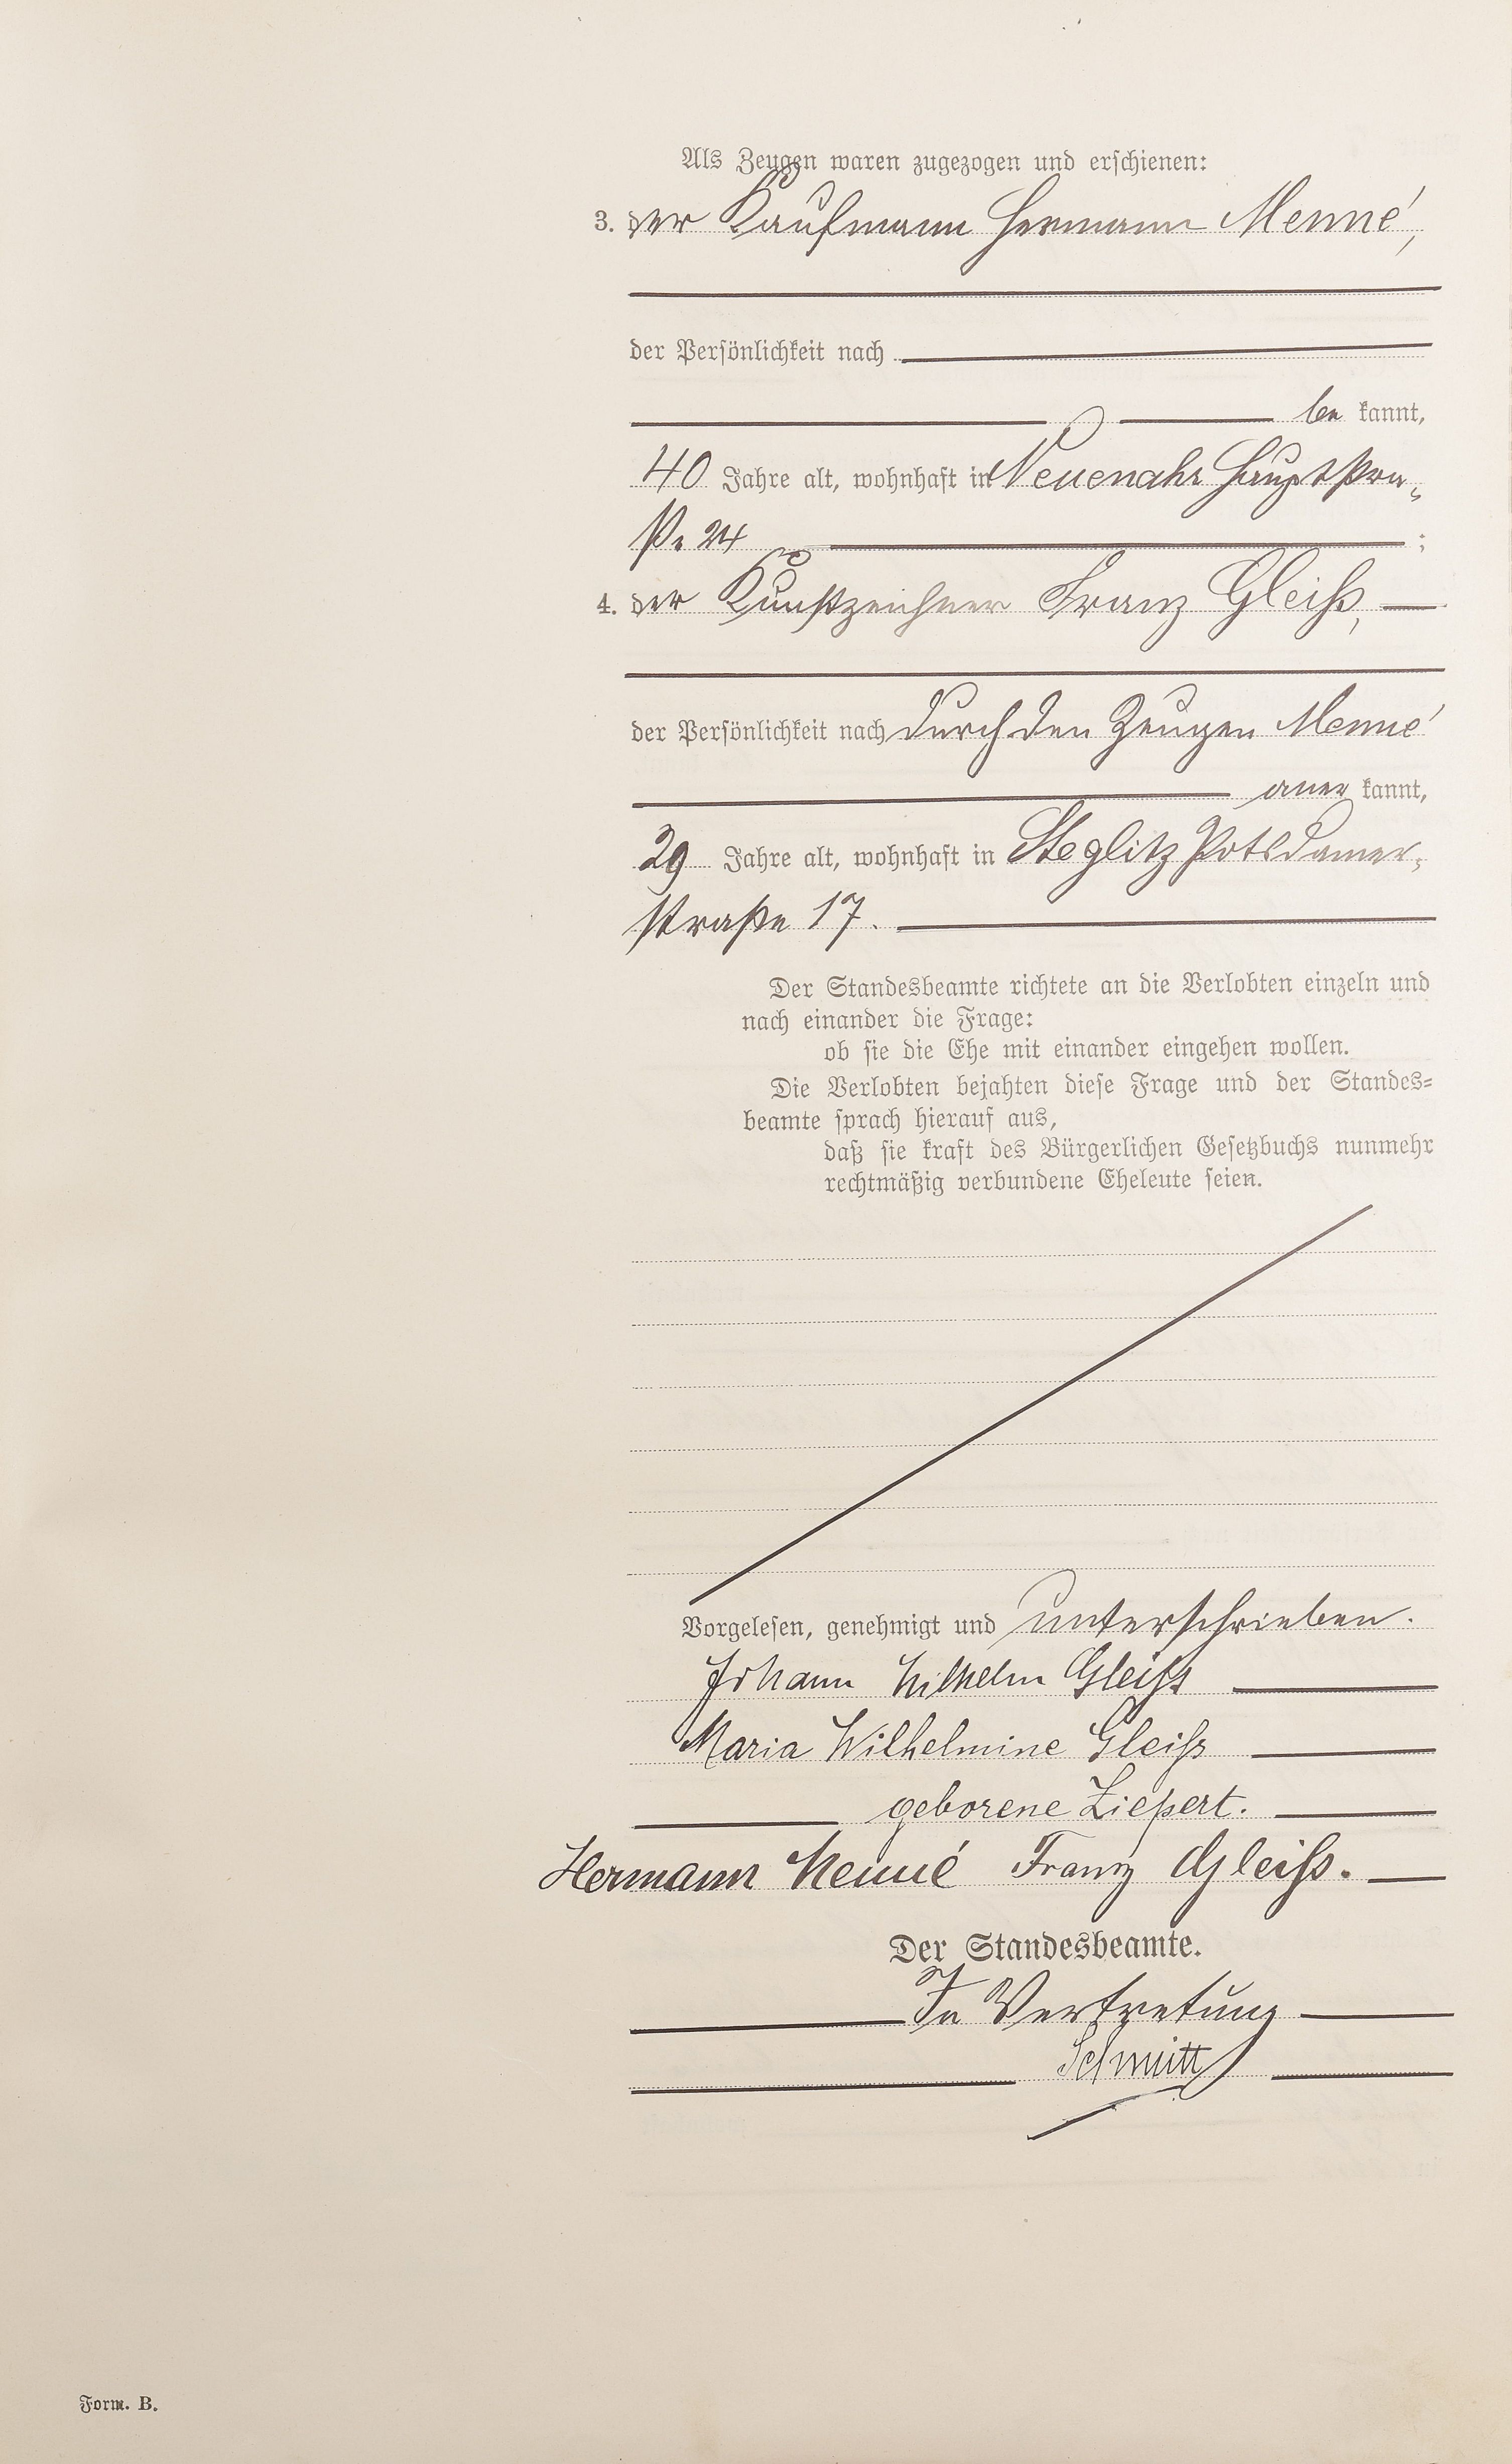 Als Zeugen waren zugezogen und erschienen:
3. der Kaufmann Hermann Menné,
der Persönlichkeit nach
be kannt,
40 Jahre alt, wohnhaft in Neuenahr Hauptstra-
ße 24 ;
4. der Kunstzeichner Franz Gleiß,
der Persönlichkeit nach durch den Zeugen Menné
aner kannt,
29 Jahre alt, wohnhaft in Steglitz Potsdamer-
straße 17.
Der Standesbeamte richtete an die Verlobten einzeln und
nach einander die Frage:
ob sie die Ehe mit einander eingehen wollen.
Die Verlobten bejahten diese Frage und der Standes-
beamte sprach hierauf aus,
daß sie kraft des Bürgerlichen Gesetzbuchs nunmehr
rechtmäßig verbundene Eheleute seien.
Vorgelesen, genehmigt und unterschrieben.
Johann Wilhelm Gleiß
Maria Wilhelmine Gleiß
geborene Liepert.
Hermann Menné Franz Gleiß.
Der Standesbeamte.
In Vertretung
Schmitt
Form. B.